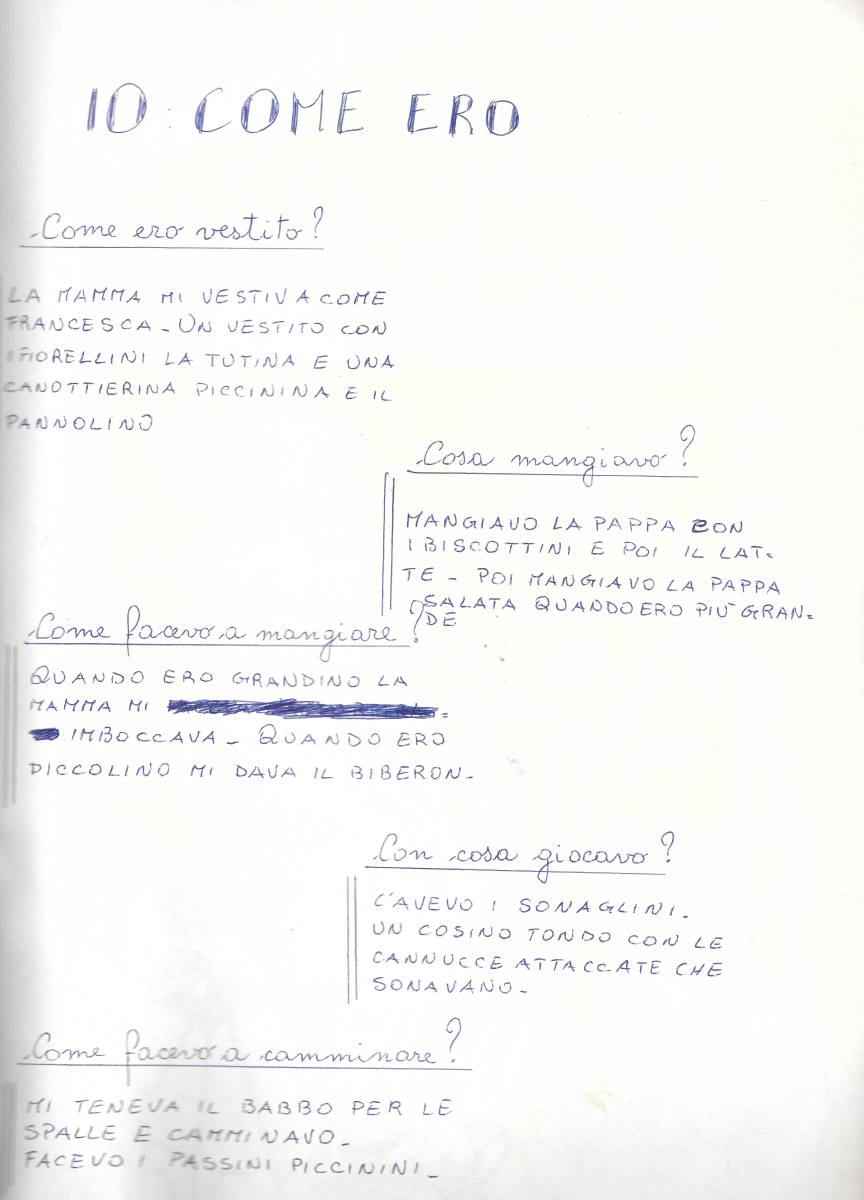 IO: COME ERO
Come ero vestito?
LA MAMMA MI VESTIVA COME
FRANCESCA - UN VESTITO CON
I FIORELLINI LA TUTINA E UNA
CANOTTIERINA PICCININA E IL
PANNOLINO
Cosa mangiavo?
MANGIAVO LA PAPPA CON
I BISCOTTINI E POI IL LAT=
TE - POI MANGIAVO LA PAPPA
SALATA QUANDO ERO PIÙ GRAN=
DE
Come facevo a mangiare?
QUANDO ERO GRANDINO LA
MAMMA MI =
IMBOCCAVA - QUANDO ERO
PICCOLINO MI DAVA IL BIBERON -
Con cosa giocavo?
C'AVEVO I SONAGLINI -
UN COSINO TONDO CON LE
CANNUCCE ATTACCATE CHE
SONAVANO -
Come facevo a camminare?
MI TENEVA IL BABBO PER LE
SPALLE E CAMMINAVO -
FACEVO I PASSINI PICCININI -